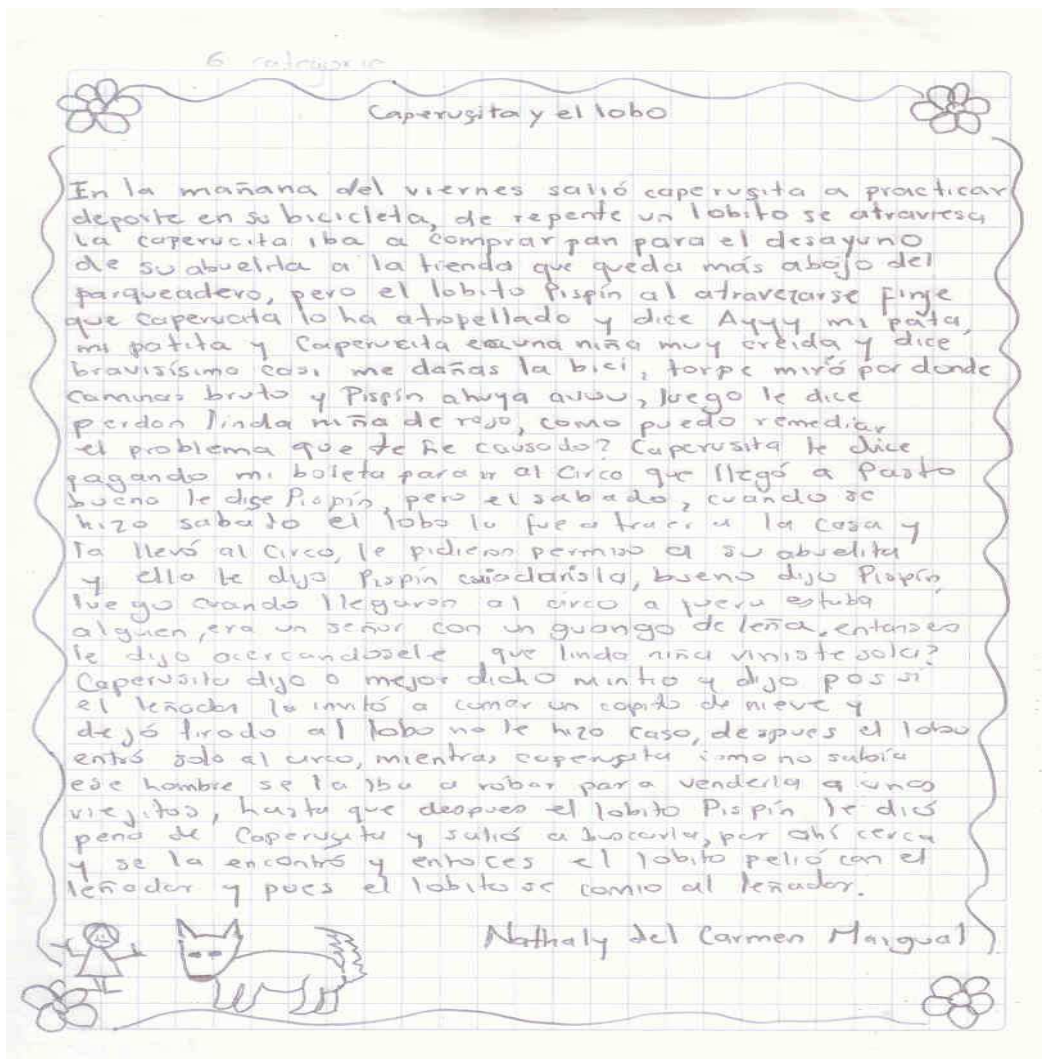 6 categoria
Caperusita y el lobo
En la mañana del viernes salió caperusita a practicar
deporte en su bicicleta, de repente un lobito se atraviesa
La caperucita iba a comprar pan para el desayuno
de su abuelita a la tienda que queda más abajo del
parqueadero, pero el lobito Pispín al atravezarse finje
que caperucita lo ha atropellado y dice Ayyy mi pata,
mi patita y Caperucita era una niña muy creida y dice
bravisísima casi me dañas la bici, torpe mirá por donde
caminas bruto y Pispín ahuya auuu, luego le dice
perdon linda niña de rojo, como puedo remediar
el problema que te he causado? Caperusita le dice
pagando mi boleta para ir al Circo que llegó a Pasto
bueno le dise Pispín, pero el sabado, cuando se
hizo sabado el lobo la fue a traer a la casa y
la llevó al Circo, le pidieron permiso a su abuelita
y ella le dijo Pispín cuidarisla, bueno dijo Pispín,
luego cuando llegaron al circo a fuera estaba
alguien, era un señor con un guango de leña, entonses
le dijo acercandosele que linda niña viniste sola?
Caperusita dijo o mejor dicho mintio y dijo pos si
el leñador la invitó a comer un copito de nieve y
dejó tirado al lobo no le hizo caso, despues el lobo
entró solo al circo, mientras caperusita como no sabía
ese hombre se la iba a robar para venderla a unos
viejitos, hasta que despues el lobito Pispín le dió
pena de Caperusita y salió a buscarla, por ahí cerca
y se la encontró y entoces el lobito pelió con el
leñador y pues el lobito se comio al leñador.
Nathaly del Carmen Maigual